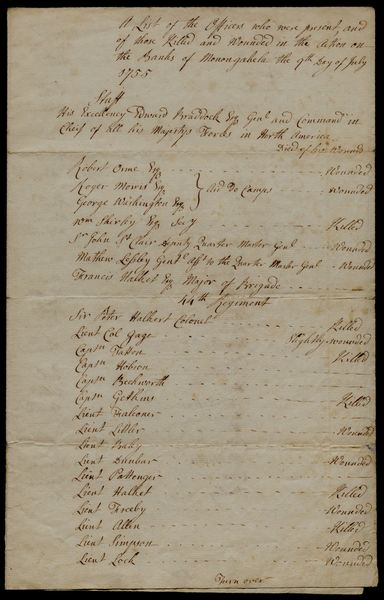 A List of the Officers who were present, and
of those Killed and Wounded in the Action on
the Banks of Monongahela the 9th Day of July
1755
Staff
His Excellency Edward Braddock Esqr Genl and Commandr in
Cheif of all his Majestys Forces in North America
Died of his Wounds
Robert Orme Esqr Wounded
Roger Morris Esqr } Aid De Camps Wounded
George Washington Esqr
Wm Shirley Esqr Secy Killed
Sr John St Clair Deputy Quarter Master Genl Wounded
Mathew Lessley Gentn Asst to the Quarter Master Genl Wounded
Francis Halket Esqr Major of Brigade
44th Regiment
Sir Peter Halkett Colonel Killed
Lieut Col Gage Slightly wounded
Captn Tatton Killed
Captn Hobson
Captn Beckworth
Captn Gethins Killed
Lieut Falconer
Lieut Littler Wounded
Lieut Baily
Lieut Dunbar Wounded
Lieut Pattenger
Lieut Halket Killed
Lieut Treeby Wounded
Lieut Allen Killed
Lieut Simpson Wounded
Lieut Lock Wounded
Turn over